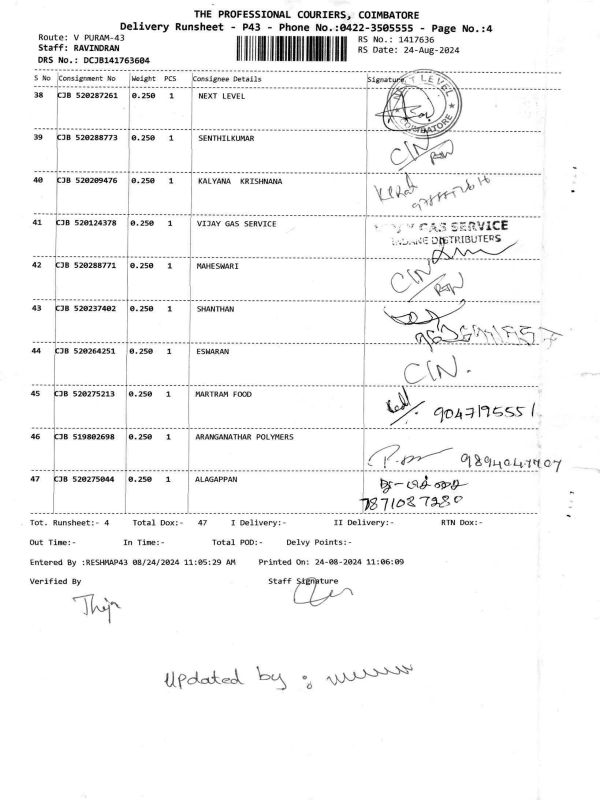 THE PROFESSIONAL COURIERS, COIMBATORE
Delivery Runsheet - P43 - Phone No.:0422-3505555 - Page No.:4
Route: V PURAM-43 RS No.: 1417636
Staff: RAVINDRAN RS Date: 24-Aug-2024
DRS No.: DCJB141763604
S No Consignment No Weight PCS Consignee Details Signature
38 CJB 520287261 0.250 1 NEXT LEVEL
COIMBATORE
39 CJB 520288773 0.250 1 SENTHILKUMAR CIN
40 CJB 520209476 0.250 1 KALYANA KRISHNANA
41 CJB 520124378 0.250 1 VIJAY GAS SERVICE GAS SERVICE
INDANE DISTRIBUTERS
42 CJB 520288771 0.250 1 MAHESWARI CIN
43 CJB 520237402 0.250 1 SHANTHAN
44 CJB 520264251 0.250 1 ESWARAN CIN.
45 CJB 520275213 0.250 1 MARTRAM FOOD 9047195551
46 CJB 519802698 0.250 1 ARANGANATHAR POLYMERS
47 CJB 520275044 0.250 1 ALAGAPPAN
7871087280
Tot. Runsheet:- 4 Total Dox:- 47 I Delivery:- II Delivery:- RTN Dox:-
Out Time:- In Time:- Total POD:- Delvy Points:-
Entered By :RESHMAP43 08/24/2024 11:05:29 AM Printed On: 24-08-2024 11:06:09
Verified By Staff Signature
Updated by :